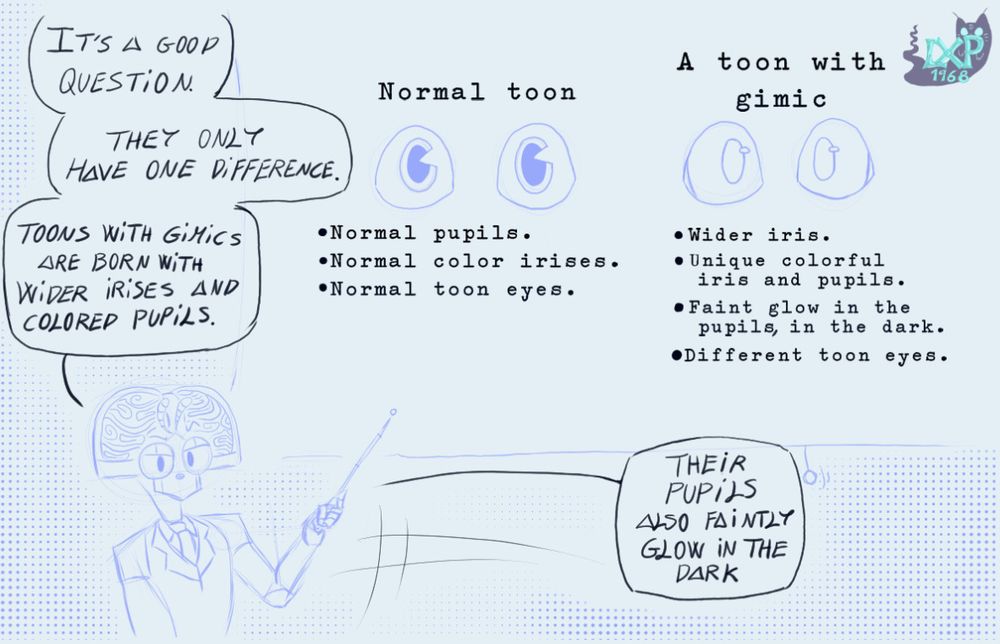 IT'S A GOOD
QUESTION.
THEY ONLY
HAVE ONE DIFFERENCE.
TOONS WITH GIMICS
ARE BORN WITH
WIDER IRISES AND
COLORED PUPILS.
Normal toon
•Normal pupils.
•Normal color irises.
•Normal toon eyes.
A toon with
gimic
•Wider iris.
•Unique colorful
iris and pupils.
•Faint glow in the
pupils, in the dark.
•Different toon eyes.
THEIR
PUPILS
ALSO FAINTLY
GLOW IN THE
DARK
DXP
1968